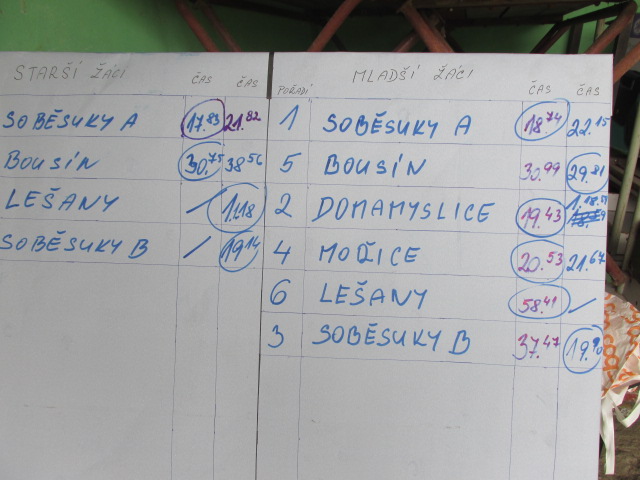 STARŠÍ ŽÁCI ČAS ČAS
SOBĚSUKY A 17.83 21.82
BOUSÍN 30.75 38.56
LEŠANY / 1.18
SOBĚSUKY B / 19.14
POŘADÍ MLADŠÍ ŽÁCI ČAS ČAS
1 SOBĚSUKY A 18.74 22.15
5 BOUSÍN 30.99 29.81
2 DOMAMYSLICE 19.43
4 MOŘICE 20.53 21.67
6 LEŠANY 58.41 /
3 SOBĚSUKY B 37.47 19.90